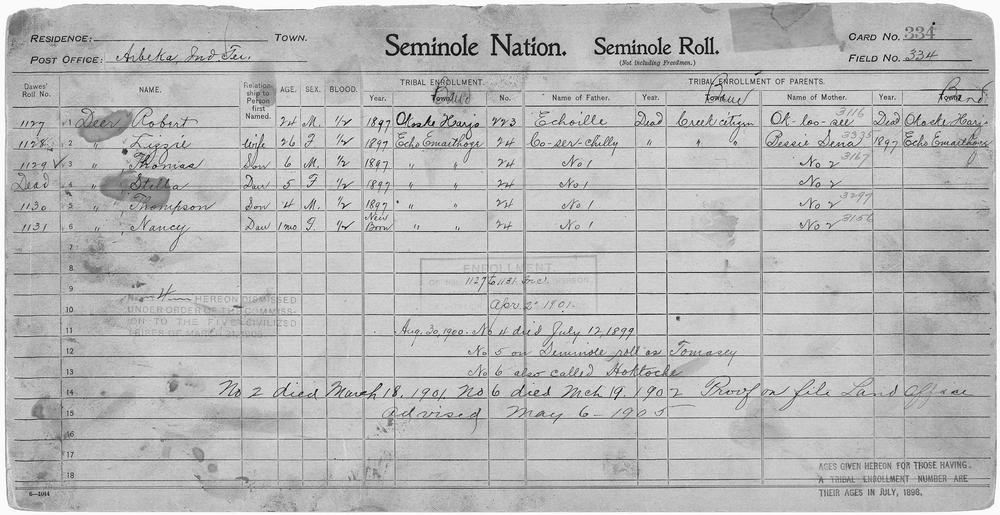 RESIDENCE: TOWN.
POST OFFICE: Arbeka Ind Ter.
Seminole Nation. Seminole Roll.
(Not including Freedmen.)
CARD NO. 334
FIELD NO. 334
Dawes' Roll No. NAME. Relationship to Person first Named. AGE. SEX. BLOOD. TRIBAL ENROLLMENT. TRIBAL ENROLLMENT OF PARENTS.
Year. Town Band No. Name of Father. Year. Town Band Name of Mother. Year. Town Band
1127 1 Deer Robert 24 M. 1/2 1897 Otoske Harjo 223 Echoille Dead Creek citizen Ok-loo-See 3116 Dead Otoske Harjo
1128 2 " Lizzie Wife 26 F 1/2 1897 Echo Emarthoge 24 Co-ser-chilly " " " Bessie Sena 3335 1897 Echo Emarthoge
1129 3 " Thomas Son 6 M. 1/2 1897 " " 24 No 1 No 2 3167
Dead 4 " Stella Dau 5 F 1/2 1897 " " 24 No 1 No 2
1130 5 " Thompson Son 4 M. 1/2 1897 " " 24 No 1 No 2 3297
1131 6 " Nancy Dau 1 mo F. 1/2 New Born " " 24 No 1 No 2 3156
7
8
ENROLLMENT
9 1127 to 1131 Incl.
No 4 HEREON DISMISSED
10 UNDER ORDER OF THE COMMISSION TO THE FIVE CIVILIZED TRIBES OF MARCH 31, 1905.
Apr. 2" 1901.
11 Aug. 30, 1900. No 4 died July 12, 1899
12 No 5 on Seminole roll as Tomasey
13 No 6 also called Hoktoche
14 No 2 died March 18, 1901. No 6 died Mch 19, 1902 Proof on file Land Office
15 advised May 6-1905
16
17
18
6-1044
AGES GIVEN HEREON FOR THOSE HAVING
A TRIBAL ENROLLMENT NUMBER ARE
THEIR AGES IN JULY, 1898.